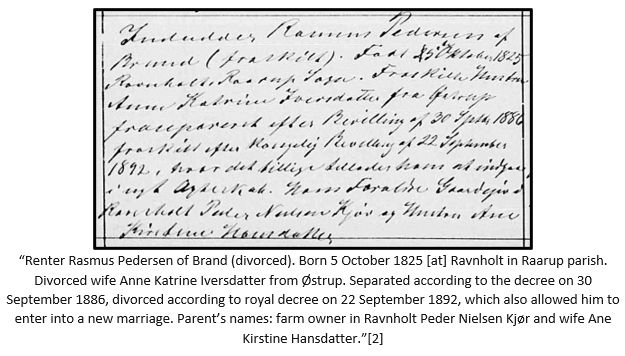 Indsidder Rasmus Pedersen af
Brand (fraskilt). Født 5 Oktober 1825
Ravnholt Raarup Sogn. Fraskilte Hustru
Anne Katrine Iversdatter fra Østrup
separeret efter Bevilling af 30 Septbr 1886
fraskilt efter Kongelig Bevilling af 22 September
1892, hvor det tillige tillades ham at indgaa
i nyt Ægteskab. Hans Forældre Gaardejer i
Ravnholt Peder Nielsen Kjør og Hustru Ane
Kirstine Hansdatter
“Renter Rasmus Pedersen of Brand (divorced). Born 5 October 1825 [at] Ravnholt in Raarup parish.
Divorced wife Anne Katrine Iversdatter from Østrup. Separated according to the decree on 30
September 1886, divorced according to royal decree on 22 September 1892, which also allowed him to
enter into a new marriage. Parent’s names: farm owner in Ravnholt Peder Nielsen Kjør and wife Ane
Kirstine Hansdatter.”[2]